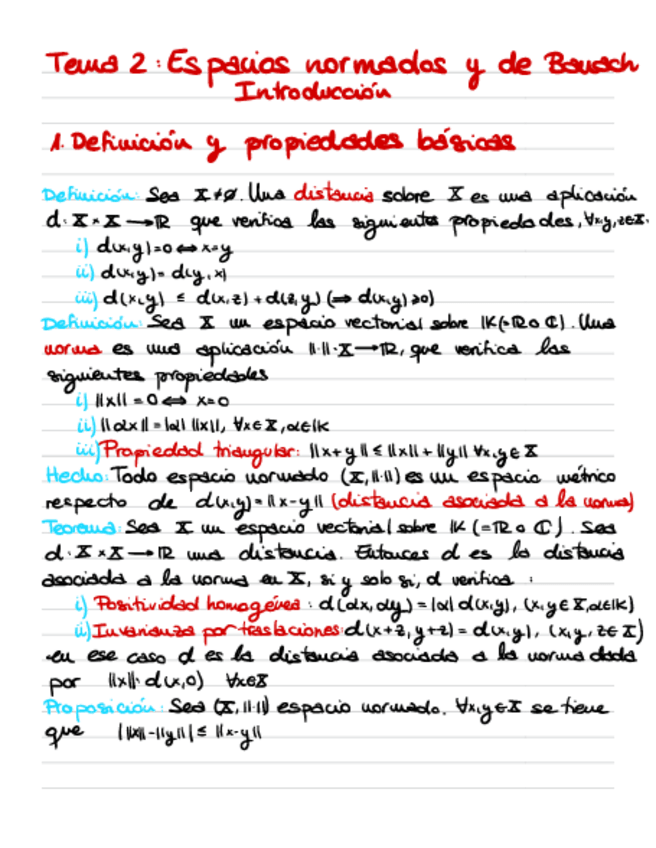 Tema 2: Espacios normados y de Banach
Introducción
1. Definición y propiedades básicas
Definición: Sea X≠ø. Una distancia sobre X es una aplicación
d: X×X→ℝ que verifica las siguientes propiedades, ∀x,y,z∈X.
i) d(x,y)=0⟺x=y
ii) d(x,y)=d(y,x)
iii) d(x,y) ≤ d(x,z)+d(z,y) (⟹ d(x,y)≥0)
Definición: Sea X un espacio vectorial sobre 𝕂(=ℝ o ℂ). Una
norma es una aplicación ‖·‖:X→ℝ, que verifica las
siguientes propiedades
i) ‖x‖=0⟺x=0
ii) ‖αx‖=|α| ‖x‖, ∀x∈X, α∈𝕂
iii) Propiedad triangular: ‖x+y‖≤‖x‖+‖y‖ ∀x,y∈X
Hecho: Todo espacio normado (X,‖·‖) es un espacio métrico
respecto de d(x,y)=‖x-y‖ (distancia asociada a la norma)
Teorema: Sea X un espacio vectorial sobre 𝕂 (=ℝ o ℂ). Sea
d: X×X→ℝ una distancia. Entonces d es la distancia
asociada a la norma en X, si y solo si, d verifica :
i) Positividad homogénea: d(αx,αy)=|α| d(x,y), (x,y∈X,α∈𝕂)
ii) Invarianza por traslaciones: d(x+z,y+z)=d(x,y), (x,y,z∈X)
en ese caso d es la distancia asociada a la norma dada
por ‖x‖: d(x,0) ∀x∈X
Proposición: Sea (X,‖·‖) espacio normado. ∀x,y∈X se tiene
que |‖x‖-‖y‖|≤‖x-y‖